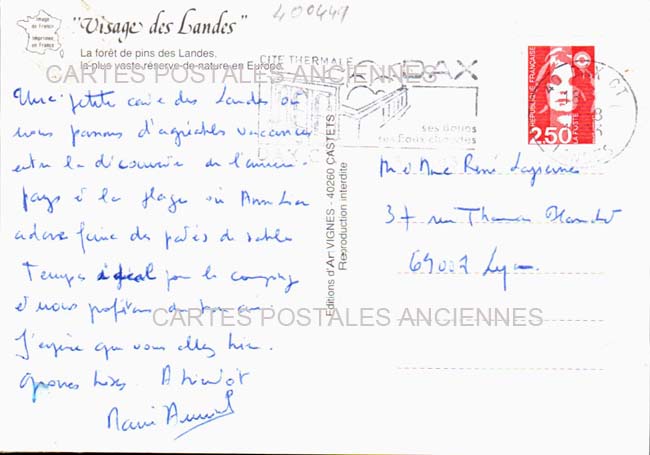 400449
Image de France
Imprimée en France
"Visage des Landes"
La forêt de pins des Landes,
la plus vaste réserve de nature en Europe.
CARTES POSTALES ANCIENNES
CITÉ THERMALE
DAX
ses boues
ses Eaux chaudes
RÉPUBLIQUE FRANÇAISE
2,50
LA POSTE
Une petite carte des Landes où
nous passons d'agréables vacances
entre la découverte de l'arrière
pays et la plage où
adore faire des patés de sable
Temps idéal pour le camping
et nous profitons du
J'espère que vous allez bien.
Grosses bises. A bientôt
Editions d'Art VIGNES - 40260 CASTETS
Reproduction interdite
Mr et Mme René
37 rue Thomas Blanchet
69007 Lyon
CARTES POSTALES ANCIENNES